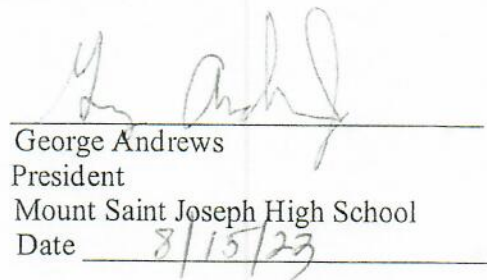 George Andrews
President
Mount Saint Joseph High School
Date 8/15/23